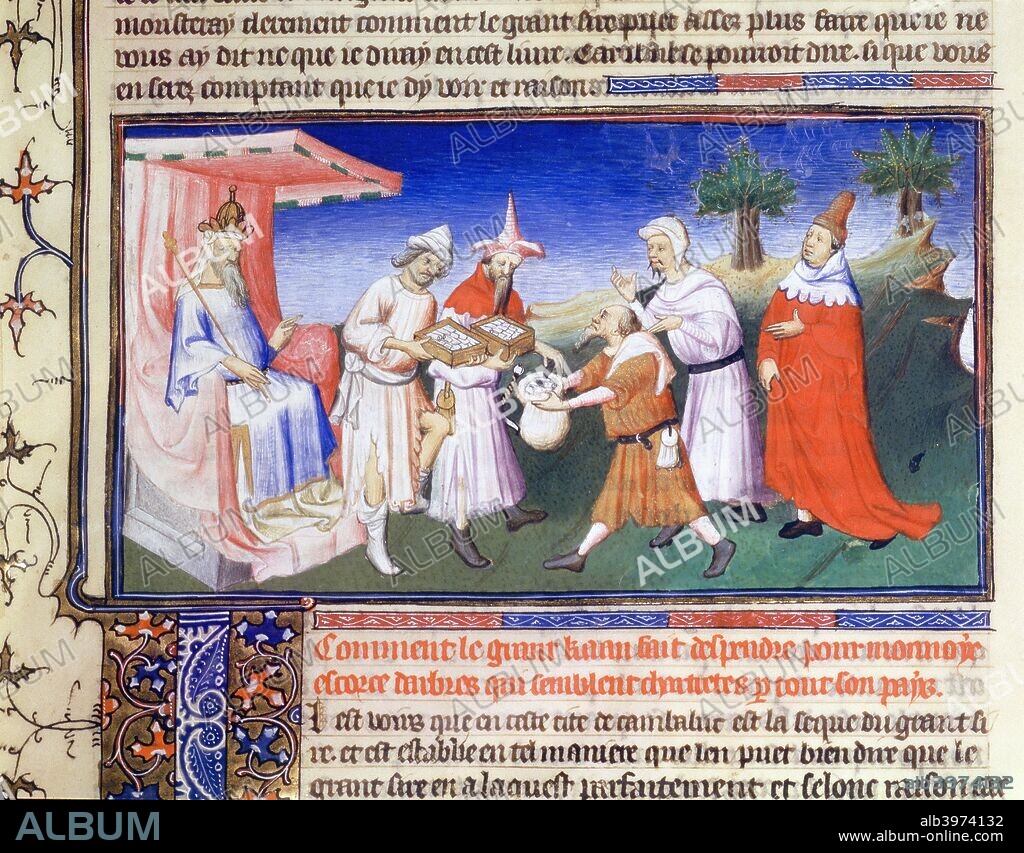 monstreray clerement comment le grant sire puet assez plus faire que ie ne
vous ay dit ne que ie diray en cest liure. Car il puet dire. si que vous
en serez comptant que ie dy voir et raison.
Comment le grant kaan fait despendre pour monnoye
escorce darbres qui semblent chartretes p tout son pays.
Il est voirs que en ceste cite de cambaluc est la seque du grant si
re. et est establie en tel maniere que len puet bien dire que le
grant sire en a laquest parfaitement et selonc raison
ALBUM
ab3974132
www.album-online.com